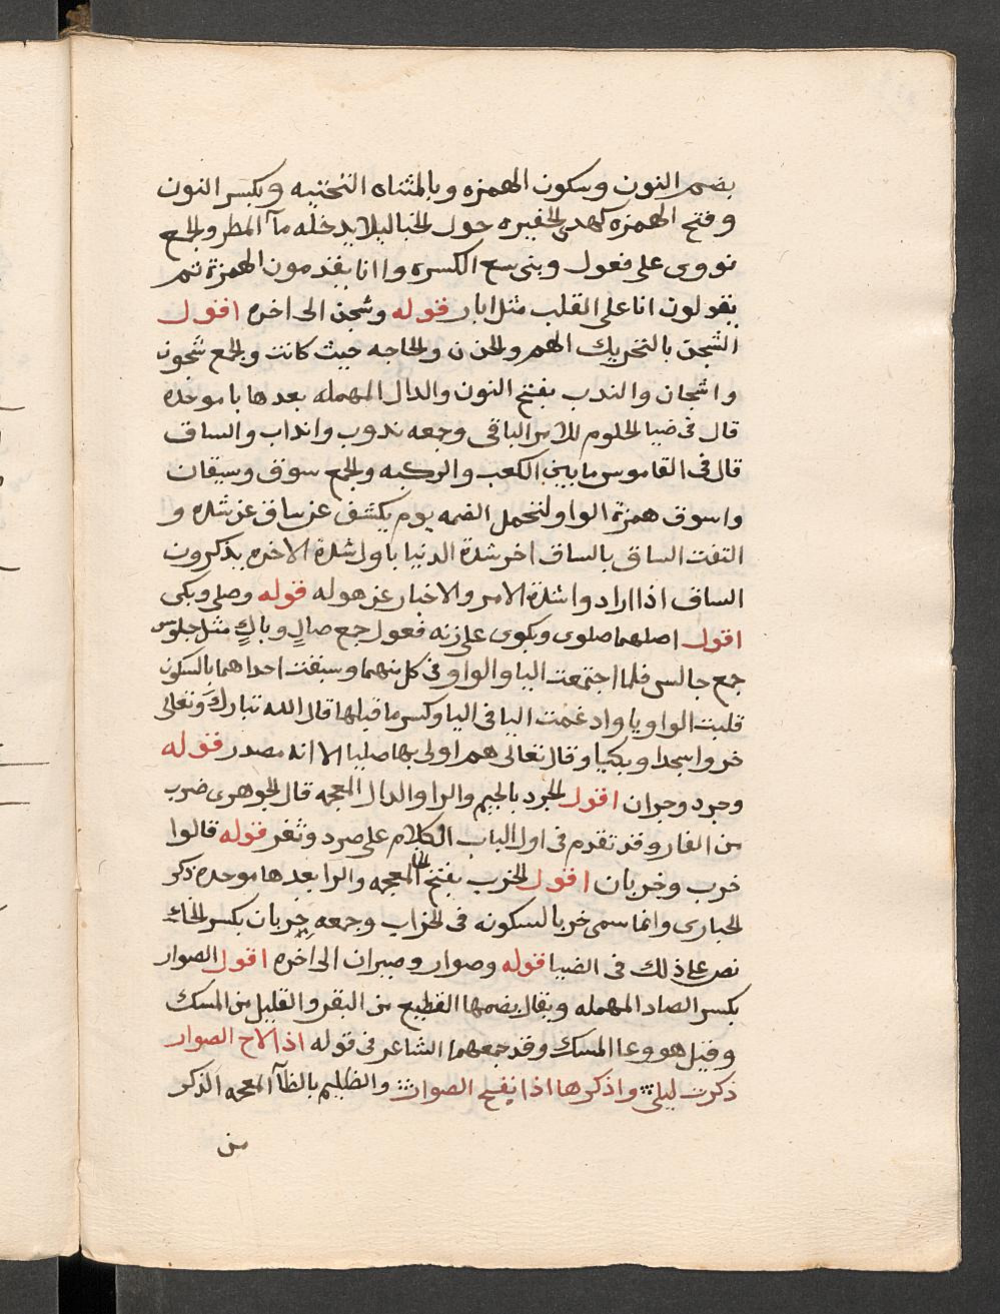 بضم النون وسكون الهمزه وبالمثناه التحتيه وبكسر النون
وفتح الهمزه كهدى الحفيره حول الخبا ليلا يدخله مآ المطر والجمع
نووى على فعول وبنى مع الكسره واانا يقدمون الهمزة ثم
يقولون انا على القلب مثل ابار قوله وشجن الى اخره اقول
الشجن بالتحريك الهم والحزن والحاجه حيث كانت والجمع شجون
واشجان والندب بفتح النون والدال المهمله بعدها با موحده
قال فى ضيا الحلوم للاثر الباقى وجمعه ندوب وانداب والساق
قال فى القاموس ما بين الكعب والركبه والجمع سوق وسيقان
واسوق همزة الواو لتحمل الضمه يوم يكشف عن ساق عن شدة و
التفت الساق بالساق اخر شدة الدنيا باول شدة الاخره يذكرون
الساق اذا ارادوا شدة الامر والاخبار عن هوله قوله وصلى وبكى
اقول اصلهما صلوى وبكوى على زنه فعول جمع صالٍ وباكٍ مثل جلوس
جمع جالس فلما اجتمعت اليا والواو فى كل منهما وسبقت احداهما بالسكون
قلبت الواو يا وادغمت اليا فى اليا وكسر ما قبلها قال الله تبارك وتعالى
خروا سجدا وبكيا وقال تعالى هم اولى بها صليا الا انه مصدر قوله
وجرد وجردان اقول الجرد بالجيم والرا والدال المعجمه قال الجوهرى ضرب
من الفار وقد تقدم فى اول الباب الكلام على صرد ونغر قوله قالوا
خرب وخربان اقول الخرب بفتح الخا المعجمه والرا بعدها موحده ذكر
الحبارى وانما سمى خربا لسكونه فى الخراب وجمعه خربان بكسر الخا
نص على ذلك فى الضيا قوله وصوار وصيران الى اخره اقول الصوار
بكسر الصاد المهمله ويقال بضمها القطيع من البقر والقليل من المسك
وقيل هو وعا المسك وقد جمعهما الشاعر فى قوله اذا لاح الصوار
ذكرت ليلى واذكرها اذا نفح الصوار والظليم بالظآ المعجمه الذكر
من